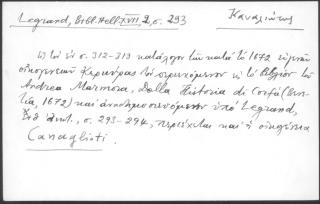 Legrand, Bibl. Hell. XVII, 2, σ. 293 Καναλιώτης
σ. 312-313 κατάλογον τῶν κατὰ τὸ 1672 εὐγενῶν
οἰκογενειῶν Κερκύρας τὸν περιεχόμενον τὸ βιβλίον τοῦ
Andrea Marmora, Della Historia di Corfù (Vene-
tia, 1672) καὶ ὑπὸ Legrand,
σ. 293-294, περιέχεται καὶ ἡ οἰκογένεια
Canaglioti.